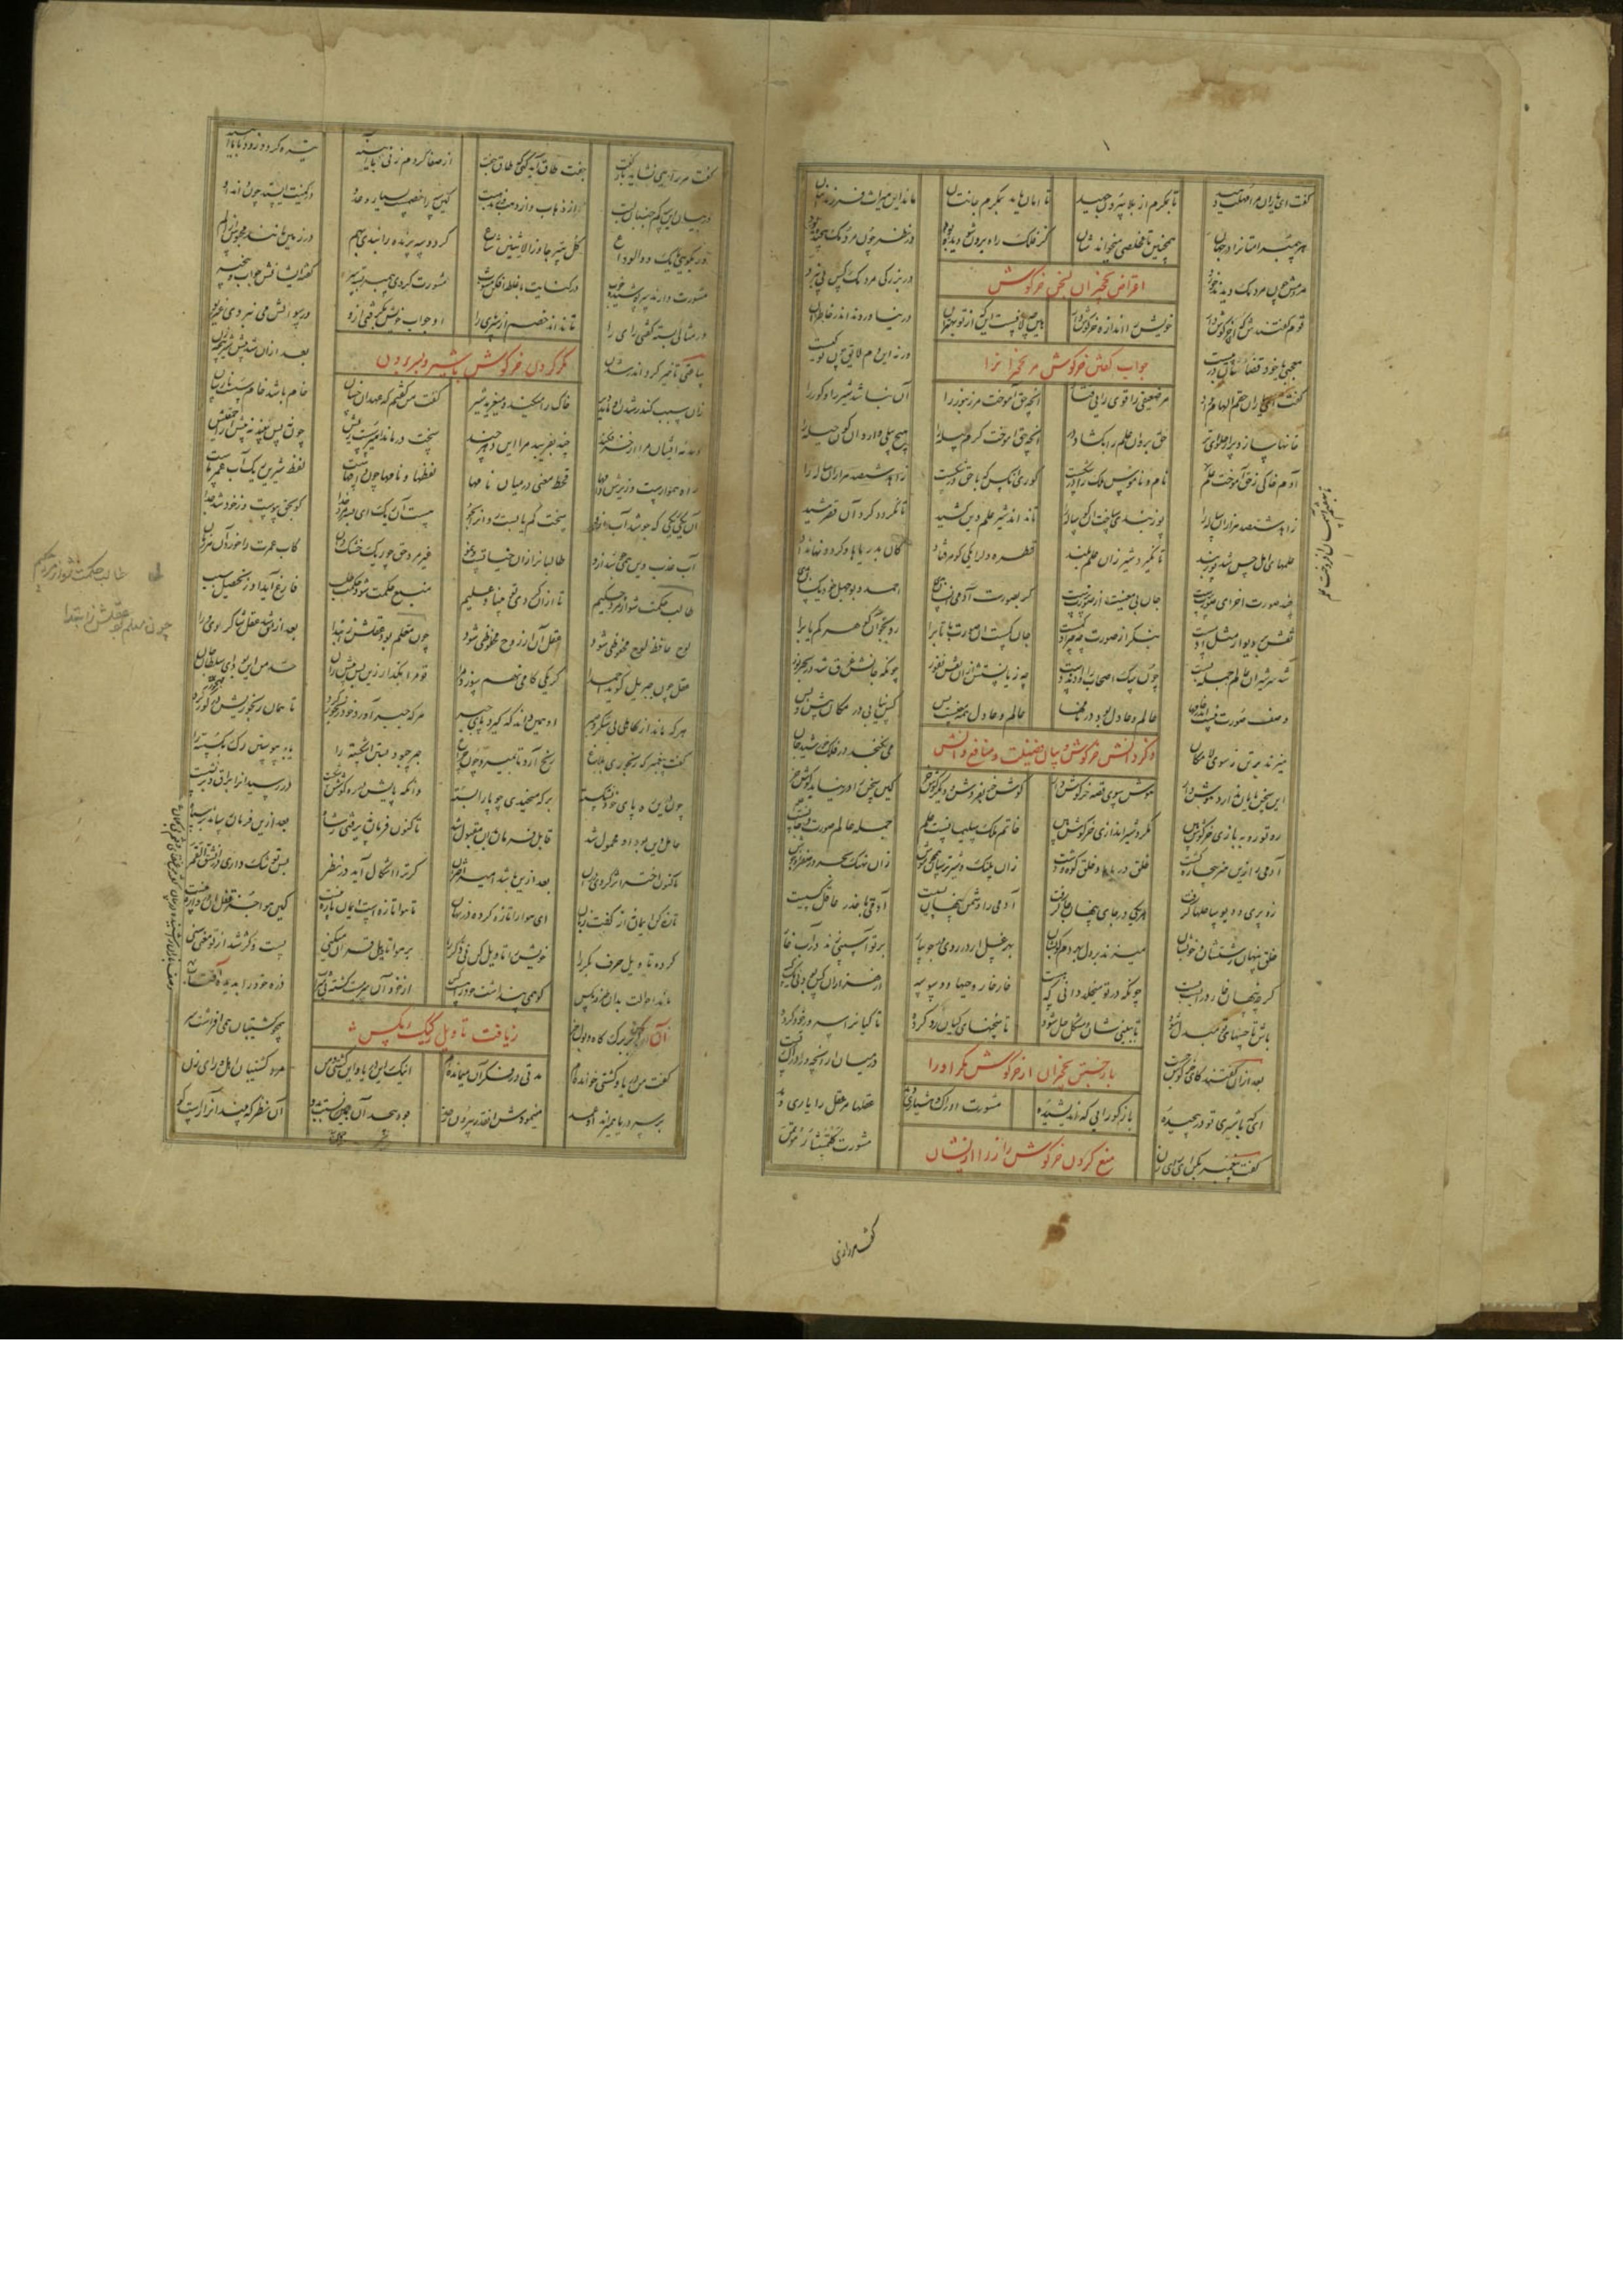 گفت ای یاران مرا مهلت دهید تا بمکرم از بلا بیرون جهید تا امان یابد بمکرم جانتان ماند این میراث فرزندانتان
هر پیمبر امتانرا در جهان همچنین تا مخلصی میخواندشان کز فلک راه برون شو دیده بود در نظر چون مردمک پیچیده بود
مردمش چون مردمک دیدند خرد در بزرگی مردمک کس پی نبرد
اعتراض نخچیران بر سخن خرگوش
قوم گفتندش که ای خر گوش دار خویش را اندازه خرگوش دار هین چه لافست این که از تو بهتران در نیاوردند اندر خاطر آن
معجبی یا خود قضامان در پیست ورنه این دم لایق چون تو کیست
جواب گفتن خرگوش مر نخچیرانرا
گفت ای یاران حقم الهام داد مر ضعیفی را قوی رایی فتاد آنچه حق آموخت مر زنبور را آن نباشد شیر را و گور را
خانها سازد پر از حلوای تر حق برو آن علم را بگشاد در آنچه حق آموخت کرم پیله را هیچ پیلی داند آن گون حیله را
آدم خاکی ز حق آموخت علم نام و ناموس ملک را در شکست کوری آنکس که با حق در شکست زاهد ششصد هزاران ساله را
تا بهفتم آسمان افروخت علم
زاهد ششصد هزاران ساله را پوزبندی ساخت آن گوساله را تا نداند شیر علم دین کشید تا نگردد گرد آن قصر مشید
علمهای اهل حس شد پوزبند تا نگیرد شیر زان علم بلند قطره دل را یکی گوهر فتاد کان بدریاها و گردونها نداد
چند صورت آخر ای صورت پرست جان بی معنیت از صورت نرست گر بصورت آدمی انسان بدی احمد و بوجهل خود یکسان بدی
نقش بر دیوار مثل آدمست بنگر از صورت چه چیز او کمست جان کمست آن صورت با تاب را رو بجو آن گوهر کمیاب را
شد سر شیران عالم جمله پست چون سگ اصحاب را دادند دست چه زیانستش از آن نقش نفور چونکه جانش غرق شد در بحر نور
وصف صورت نیست اندر خامها عالم و عادل بود در نامها عالم و عادل همه معنیست بس کش نیابی در مکان و پیش و پس
میزند بر تن ز سوی لامکان می نگنجد در فلک خورشید جان
ذکر دانش خرگوش و بیان فضیلت و منافع دانش
این سخن پایان ندارد هوش دار هوش سوی قصه خرگوش دار گوش خر بفروش و دیگر گوش خر کین سخن را در نیابد گوش خر
رو تو روبه بازی خرگوش بین مکر و شیراندازی خرگوش بین خاتم ملک سلیمانست علم جمله عالم صورت و جانست علم
آدمی را زین هنر بیچاره گشت خلق دریاها و خلق کوه و دشت زان پلنگ و شیر ترسان همچو موش زان نهنگ بحر در صفرا و جوش
زو پری و دیو ساحلها گرفت هر یکی در جای پنهان جا گرفت آدمی را دشمن پنهان بسیست آدمی با حذر عاقل کسیست
خلق پنهان زشتشان و خوبشان میزند بر دل بهر دم کوبشان بهر غسل ار در روی در جویبار بر تو آسیبی زند در آب خار
گرچه پنهان خار در آبست پست چونکه در تو میخلد دانی که هست خارخار وحیها و وسوسه از هزاران کس بود نی یک کسه
باش تا حسهای تو مبدل شود تا ببینیشان و مشکل حل شود تا سخنهای کیان رد کرده تا کیانرا سرور خود کرده
بعد از آن گفتند کای خرگوش چست در میان آر آنچه در ادراک تست
باز جستن نخچیران از خرگوش مکر او را
ای که با شیری تو در پیچیده باز گو رایی که اندیشیده مشورت ادراک و هشیاری دهد عقلها مر عقل را یاری دهد
گفت پیغمبر بکن ای رای زن مشورت کالمستشار مؤتمن
منع کردن خرگوش راز را از ایشان
گفت هر رازی
گفت هر رازی نشاید باز گفت جفت طاق آید گهی گه طاق جفت از صفا گر دم زنی با آینه تیره گردد زود با ما آینه
در بیان این سه کم جنبان لبت از ذهاب و از ذهب وز مذهبت کین سه را خصمست بسیار و عدو در کمینت ایستد چون داند او
ور بگویی با یکی دو الوداع کل سر جاوز الاثنین شاع گر دو سه پرنده را بندی بهم بر زمین مانند محبوس از الم
مشورت دارند سرپوشیده خوب در کنایت با غلط افکن مشوب مشورت کردی پیمبر بسته سر گفته ایشانش جواب و بیخبر
در مثالی بسته گفتی رای را تا نداند خصم از سر پای را او جواب خویش بگرفتی ازو وز سؤالش می نبردی غیر بو
ساعتی تاخیر کرد اندر شدن بعد از آن شد پیش شیر پنجه زن
مکر کردن خرگوش با شیر و بسر بردن
زان سبب کاندر شدن او ماند دیر خاک را میکند و میغرید شیر گفت من گفتم که عهد آن خسان خام باشد خام و سست و نارسان
دمدمه ایشان مرا از خر فکند چند بفریبد مرا این دهر چند سخت درماند امیر سست ریش چون نه پس بیند نه پیش از احمقیش
راه هموارست و زیرش دامها قحط معنی در میان نامها لفظها و نامها چون دامهاست لفظ شیرین ریگ آب عمر ماست
آن یکی ریگی که جوشد آب ازو سخت کم یابست رو آنرا بجو هست آن ریگ ای پسر مرد خدا کو بحق پیوست و از خود شد جدا
آب عذب دین همی جوشد ازو طالبانرا زان حیاتست و نمو غیر مرد حق چو ریگ خشک دان کاب عمرت را خورد او هر زمان
طالب حکمت شو از مرد حکیم تا از او گردی تو بینا و علیم منبع حکمت شود حکمت طلب فارغ آید او ز تحصیل و سبب
طالب حکمت شو از مرد حکیم
لوح حافظ لوح محفوظی شود عقل او از روح محظوظی شود چون معلم بود عقلش ز ابتدا بعد ازین شد عقل شاگردی ورا
چون معلم بود عقلش ز ابتدا
عقل چون جبریل گوید احمدا گر یکی گامی نهم سوزد مرا تو مرا بگذار زین پس پیش ران حد من این بود ای سلطان جان
هر که ماند از کاهلی بی شکر و صبر او همین داند که گیرد پای جبر هر که جبر آورد خود رنجور کرد تا همان رنجوریش در گور کرد
گفت پیغمبر که رنجوری بلاغ رنج آرد تا بمیرد چون چراغ جبر چبود بستن اشکسته را یا بپیوستن رگی بگسسته را
چون درین ره پای خود نشکسته بر که میخندی چو پا را بسته وانکه پایش در ره کوشش شکست در رسید او را براق و بر نشست
حامل دین بود او محمول شد قابل فرمان بد او مقبول شد تاکنون فرمان پذیرفتی ز شاه بعد ازین فرمان رساند بر سپاه
تاکنون اختر اثر کردی درو بعد ازین باشد امیر اختر او گر ترا اشکال آید در نظر پس تو شک داری در انشق القمر
تازه کن ایمان نه از گفت زبان ای هوا را تازه کرده در نهان تا هوا تازه است ایمان تازه نیست کین هوا جز قفل آن دروازه نیست
کرده تاویل حرف بکر را خویش را تاویل کن نی ذکر را بر هوا تاویل قرآن میکنی پست و کژ شد از تو معنی سنی
ماند احوالت بدان طرفه مگس کو همی پنداشت خود را هست کس از خود آن سرمست گشته بی شراب ذره خود را بدیده آفتاب
آن مگس بر برگ کاه و بول خر همچو کشتیبان همی افراشت سر
زیافت تاویل رکیک مگس
گفت من دریا و کشتی خوانده ام مدتی در فکر آن میمانده ام اینک این دریا و این کشتی و من مرد کشتیبان و اهل و رای زن
بر سر دریا همی راند او عمد مینمودش آنقدر بیرون ز حد بود بیحد آن چمین نسبت بدو آن نظر که بیند آنرا راست کو